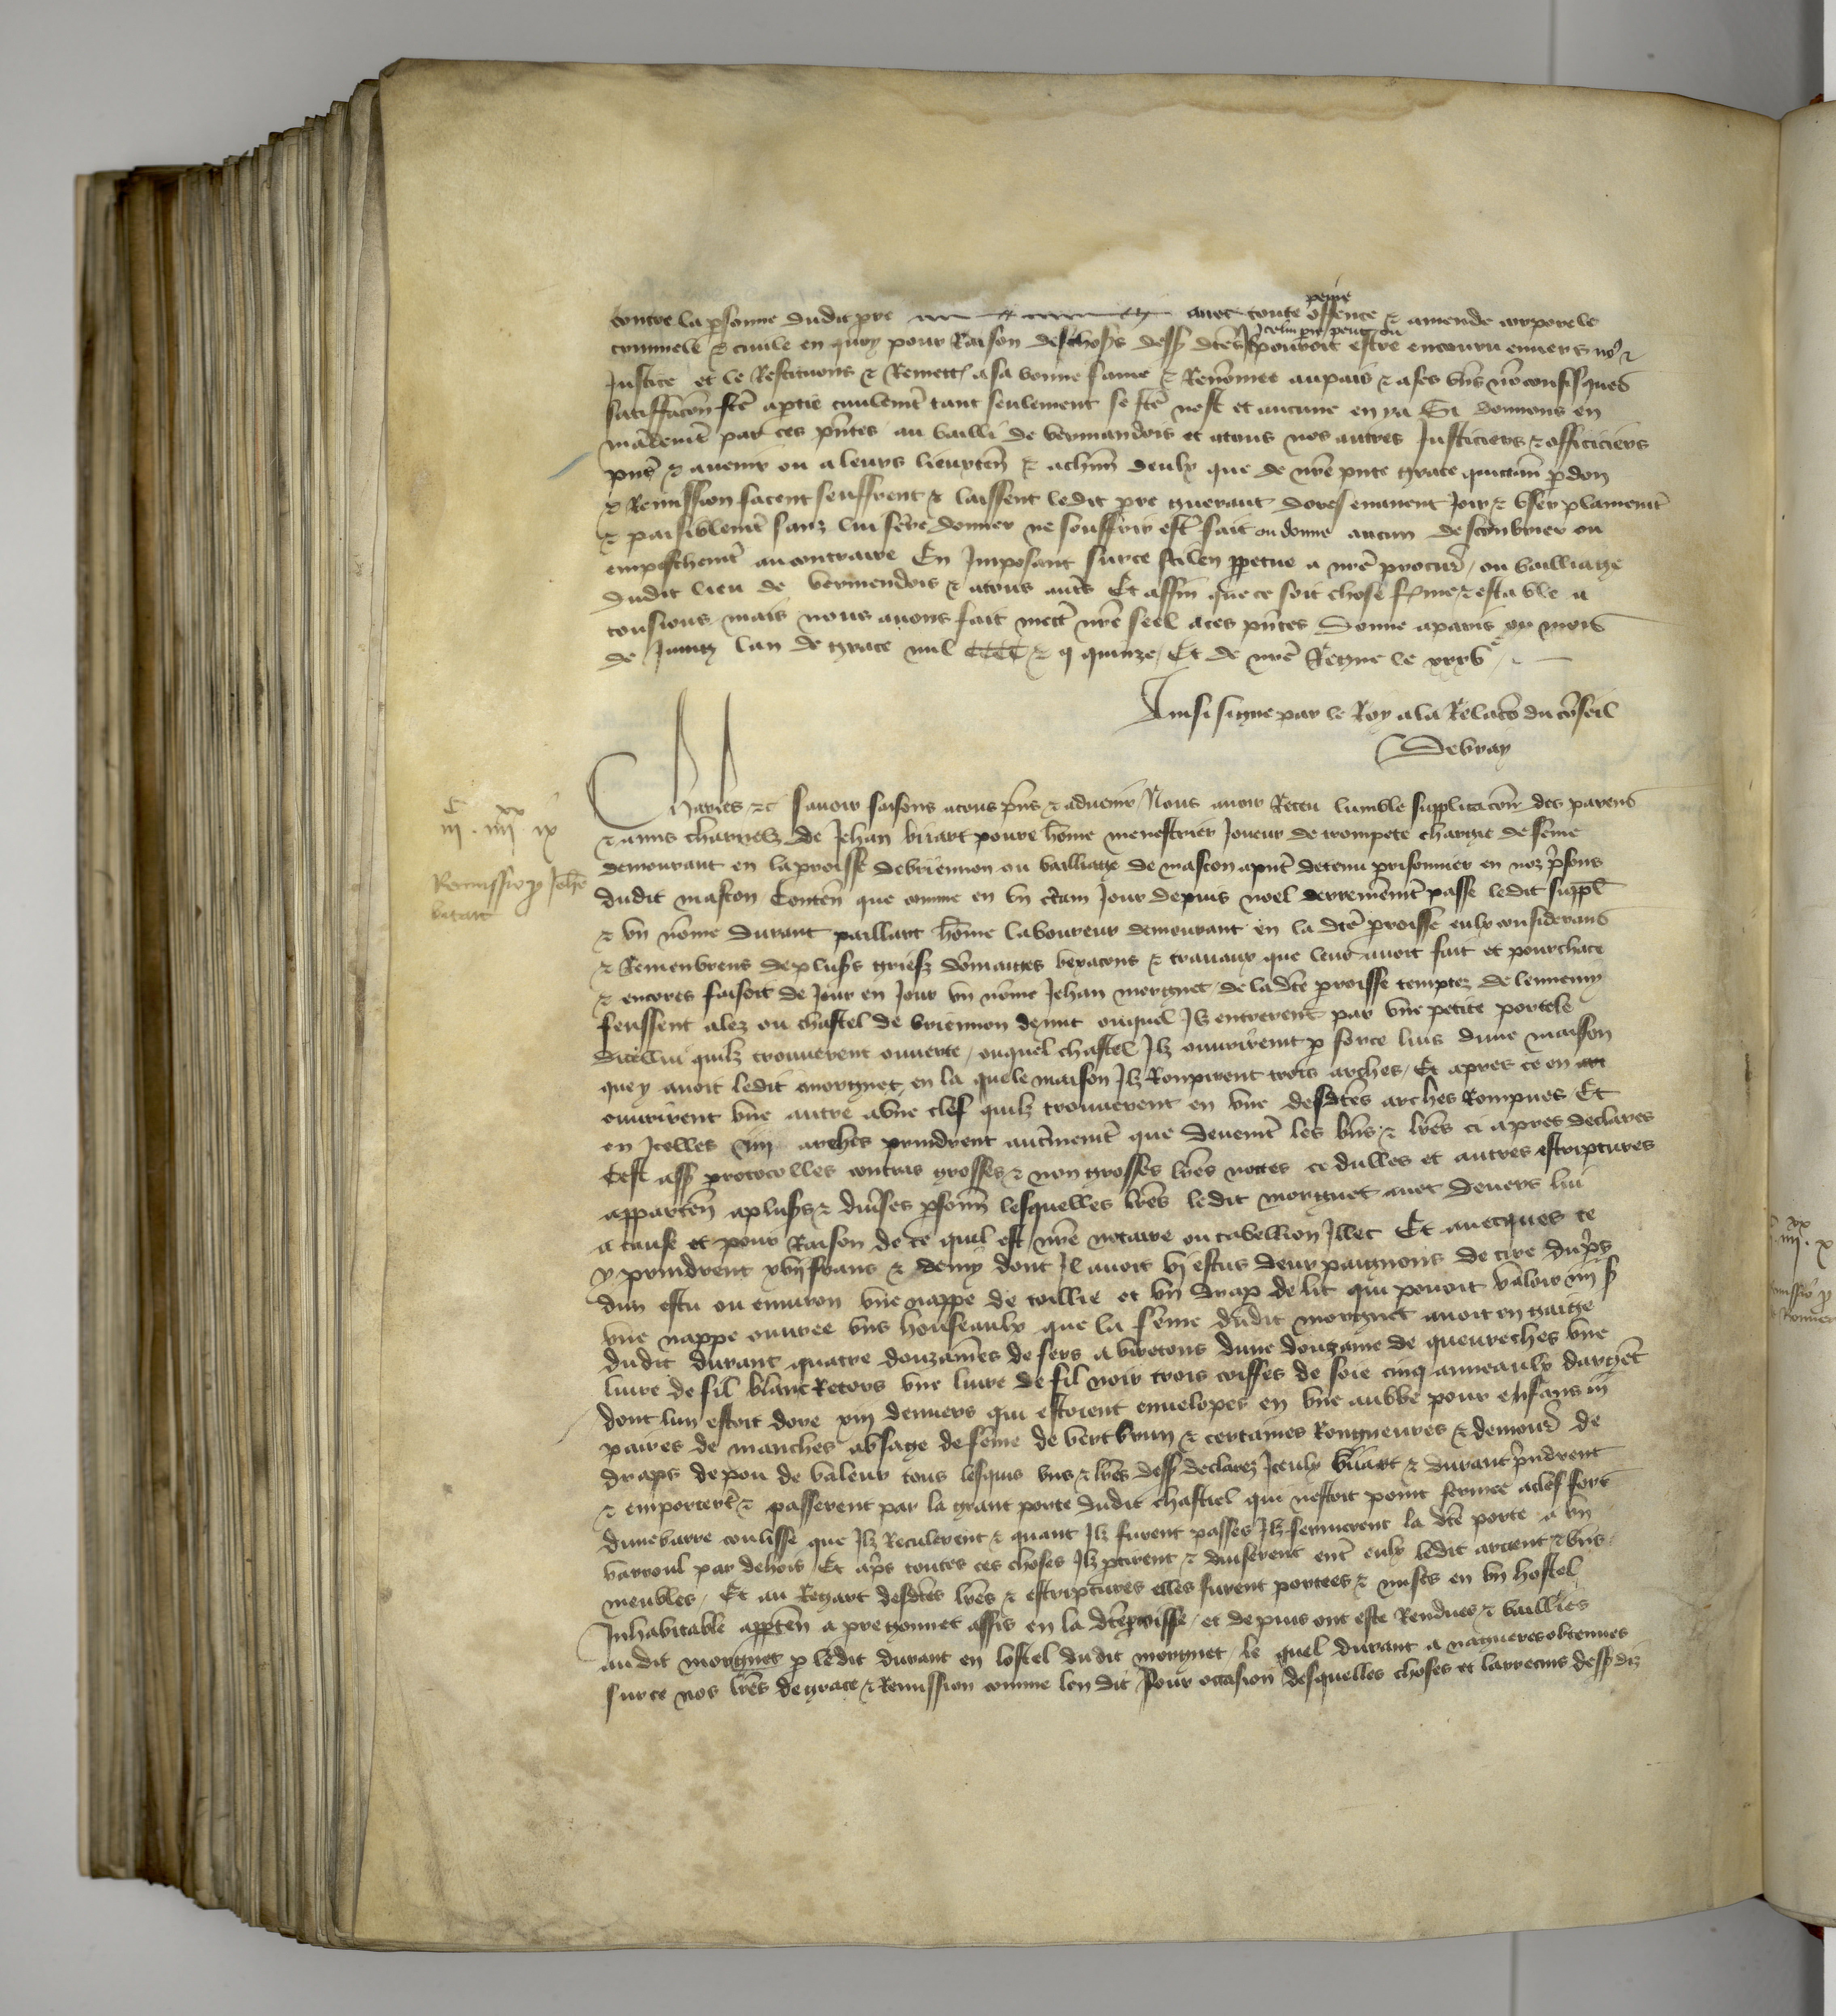 contre la personne dudit pre avec toute offence peine & amende corporele
criminele & civile en quoy pour Raison des choses dess dctes Icelui pre peut ou pourroit estre encouru envers no9 &
Justice et le Restituons & Remett a sa bonne fame & Renomee au pais & a ses bns no confisques
satisffacon fte a partie civilemt tant seulement se fte nest et aucune en y a Si donnons en
mademt par ces pntes au bailli de vermandois et a tous nos autres Justiciers & officiciers
pns & avenir ou a leurs lieuxten & a chun deulx que de nre pnte grace quictan pdon
& Remission facent seuffrent & laissent ledit pre guerant doresenavent Joir & user plainemt
& paisiblemt sanz lui fere donner ne souffrir est fait ou donne aucun destourbier ou
empeschemt au contraire En Imposant sur ce silen ppetue a nre procur ou bailliage
dudit lieu de vermendois & a tous auts Et affin que ce soit chose ferme & estable a
tousiours mais nous avons fait mett nre seel a ces pntes Donne a paris ou mois
de Juing lan de grace mil CCCC & quinze Et de nre Regne le xxxve
Ainsi signe par le Roy a la Relacon du conseil
Debray
Charles &c savoir faisons a tous pns & advenir Nous avoir Receu lumble supplicacon des parens
& amis charnelz de Jehan bitart povre home menestrier Joueur de trompete charge de feme
demourant en la proisse de briennon ou bailliage de mascon a pnt detenu prisonnier en noz psons
dudit mascon Conten que comme en un ctain Jour depuis noel derrenieremt passe ledit suppl
& un nome durant paillart home laboureur demourant en la dcte proisse eulx considerans
& Remenbrens de plusrs griefz domaiges vexacons & travaux que leur avoit fait et pourchace
& encores faisoit de Jour en Jour un nome Jehan morgnet de ladcte proisse temptez de lennemy
feussent alez ou chastel de briennon de nuit ouquel Ilz entrerent par une petite portele
dicellui quilz trouverent ouverte ouquel chastel Ilz ouvrirent p force luis dune maison
que y avoit ledit morgnet en la quele maison Ilz Ronpirent trois arches Et apres ce en
ouvrirent une autre a une clef quilz trouverent en une desdctes arches Rompues Et
en Icelles iiii arches prindrent autremt que deuemt les bns & lres ci apres declares
Cest ass protocolles contras grosses & non grosses lres nottes cedulles et autres escriptures
apparten a plusrs & diverses psonn lesquelles lres ledit morgnet avoit devers lui
a cause et pour Raison de ce quil est nre notaire ou tabellion Illec Et avecques ce
y prindrent xvii frans & demy dont Il avoit vi escus deux paignons de cire du pris
dun escu ou environ une nappe de toillie et un drap de lit qui povoit valoir iiii s
une nappe ouvree uns houseaulx que la feme dudit morgnet avoit en gaige
dudit durant quatre douzaines de fers a viretons dune douzaine de queuveches une
livre de fil blanc Retors une livre de fil noir trois coiffes de soie cinq anneaulx dargent
dont lun estoit dore xiii deniers qui estoient envelopes en une aubbe pour enfans iii
paires de manches a usage de feme de vert brun & certaines Rongneures & demour de
draps de pou de valeur tous lesquis bns & lres dess declarez Iceulx bitart & durant pndrent
& emporter & passerent par la grant porte dudit chastel qui nestoit point fermee a clef fort
dune barre coulisse que Ilz Reculerent & quant Ilz furent passes Ilz fermerent la dcte porte a un
varroul par dehors Et aps toutes ces choses Ilz ptirent & diviserent ent eulx ledit argent & bns
meubles Et au Regart desdctes lres & escriptures elles furent portees & mises en un hostel
Inhabitable appten a pre gonnet assis en la dcte proisse et depuis ont este Rendues & baillies
au dit morgnet p ledit durant en lostel dudit morgnet le quel durant a nagueres obtenues
sur ce nos lres de grace & Remission comme len dit Pour occasion desquelles choses et larrecins dess diz
C xx
iii . iiii . ix
Remissio p Jehe
bitart
xx
iiii . x